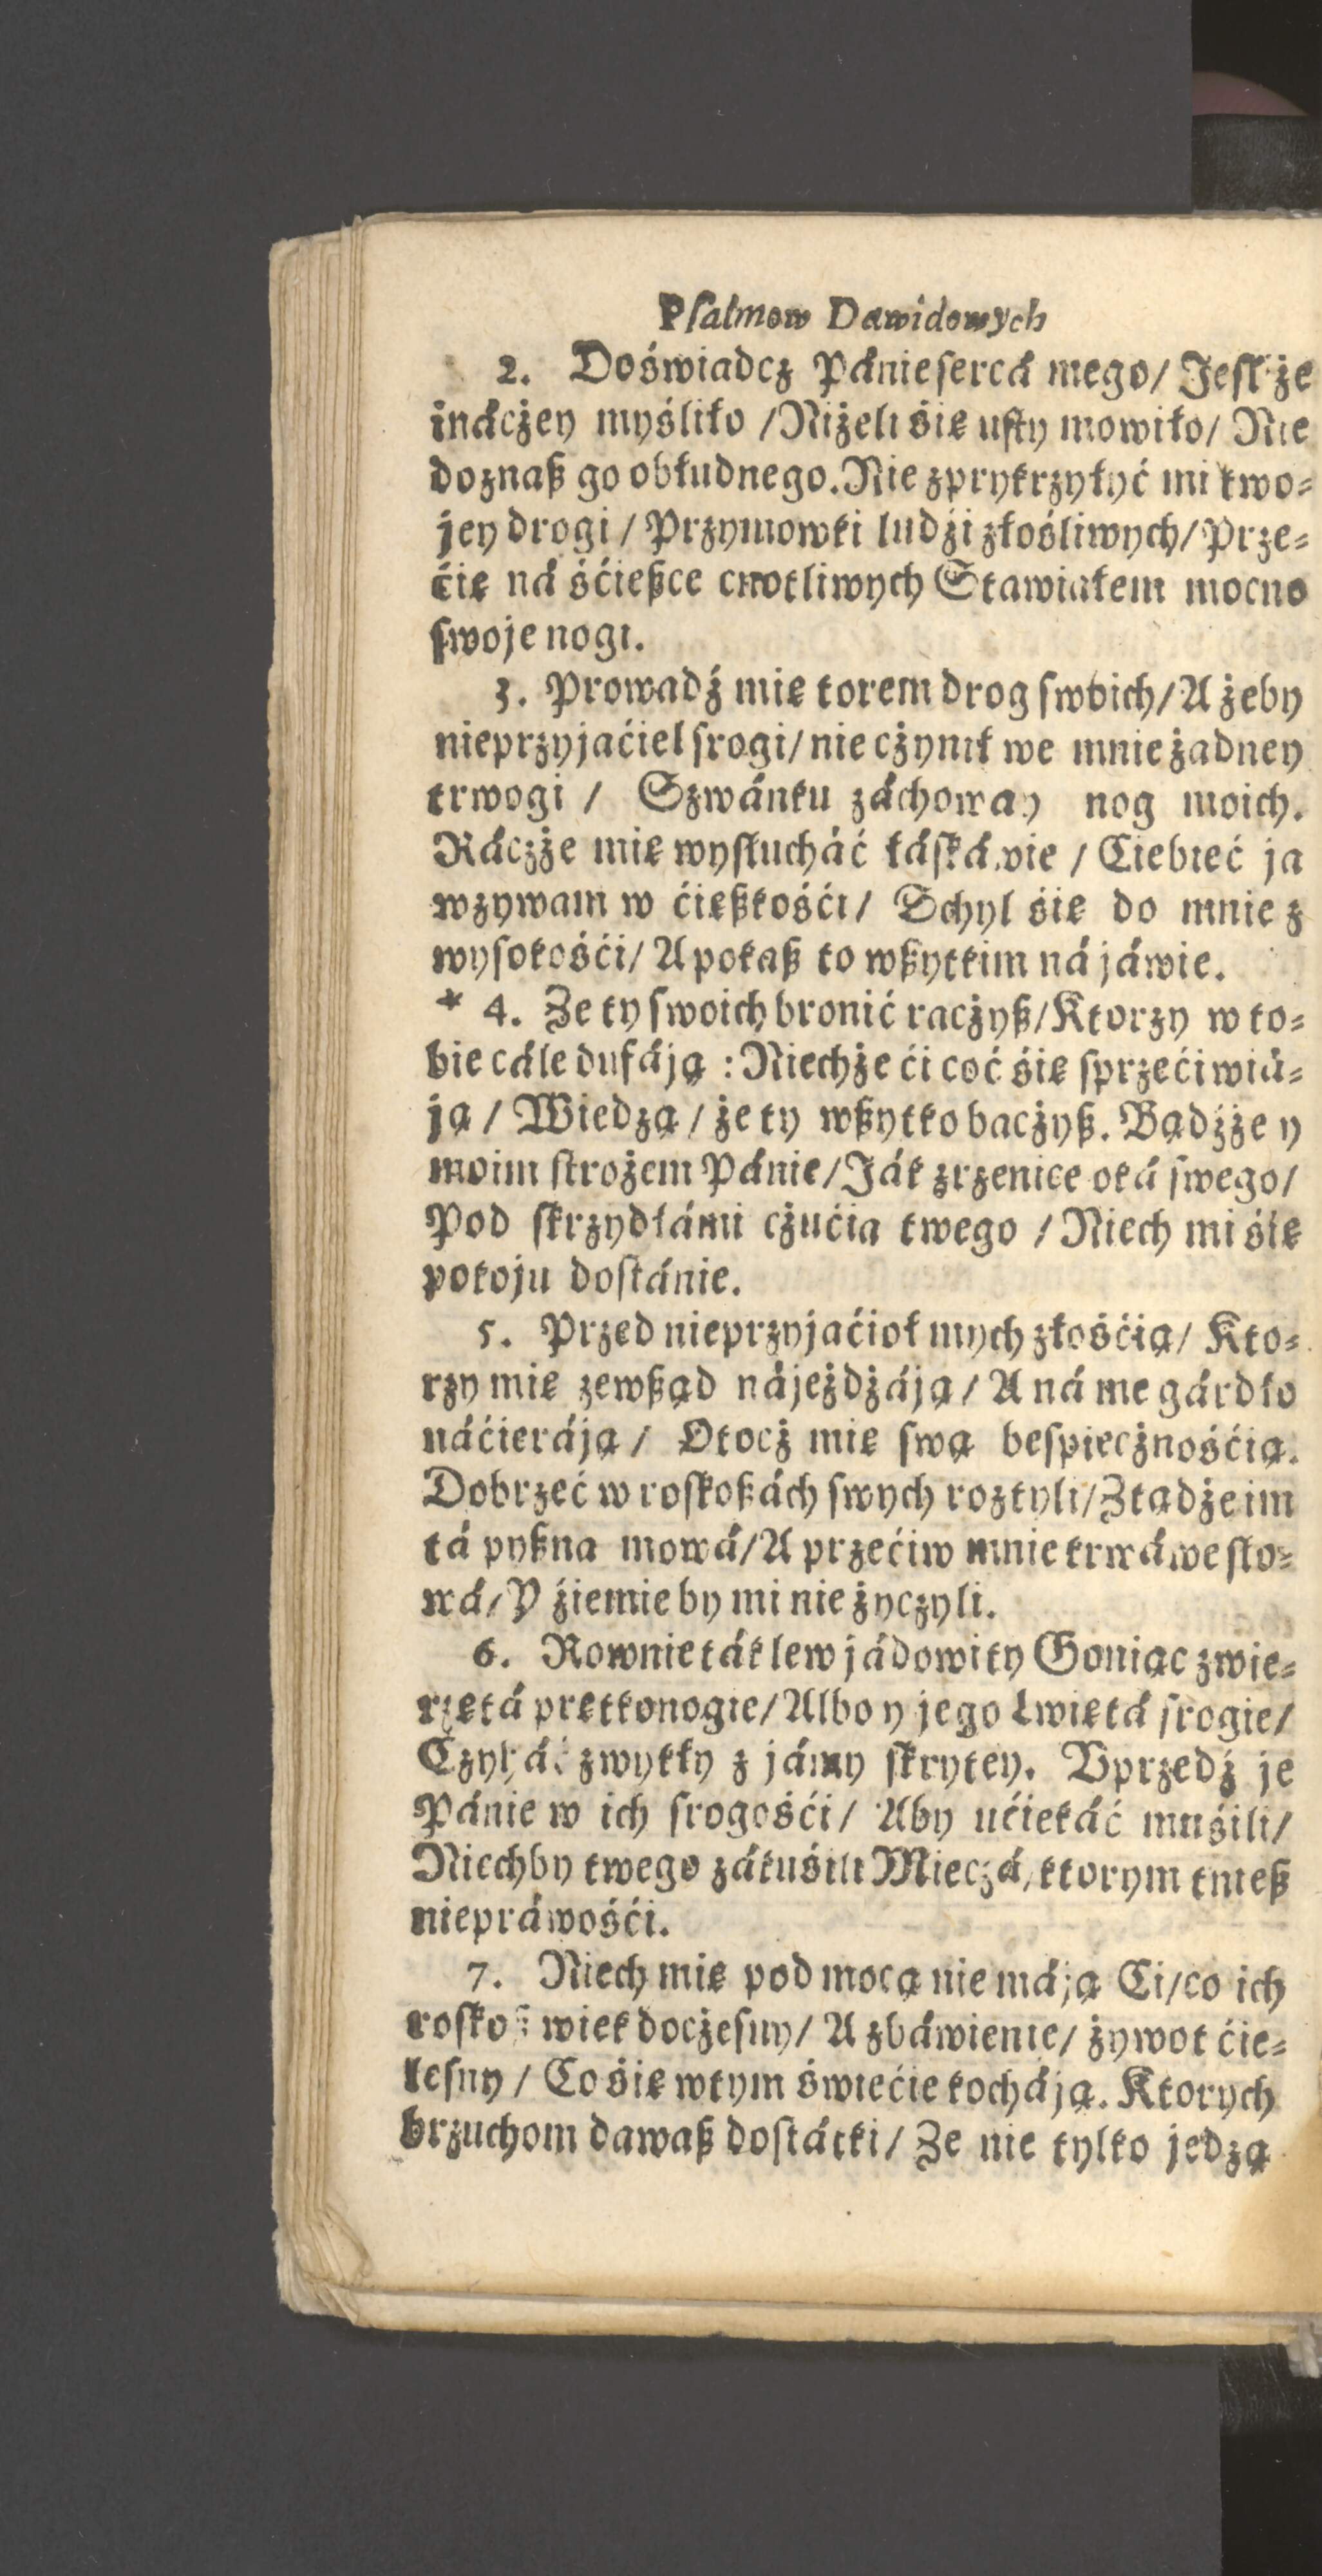 Psalmow Dawidowych
2. Doświadcz Pánie sercá mego/ Jest że
ináczey myśliło /Niżeli śię usty mowiło/ Nie
doznaß go obłudnego. Nie zprykrzyłyć mi two⸗
jey drogi / Przymowki ludźi złośliwych/ Prze⸗
ćię ná śćießce cnotliwych Stawiałem mocno
swoje nogi.
3. Prowadź mię torem drog swoich/ A żeby
nieprzyjaćiel srogi/ nie cżynił we mnie żadney
trwogi / Szwánku záchoway nog moich.
Ráczże mię wysłucháć łáskáwie / Ciebieć ja
wzywam w ćięßkośći/ Schyl śię do mnie z
wysokośći/ A pokaß to wßytkim ná jáwie.
* 4. Ze ty swoich bronić racżyß/ Ktorzy w to⸗
bie cále dufáją : Niechże ći coć śię sprzećiwiá⸗
ją / Wiedzą / że ty wßytko bacżyß. Bądźże y
moim strożem Pánie/ Ják zrzenice oká swego/
Pod skrzydłámi cżućia twego / Niech mi śię
pokoju dostánie.
5. Przed nieprzyjaćioł mych złośćią/ Kto⸗
rzy mię zewßąd nájeżdżáją/ A ná me gárdło
náćieráją / Otocż mię swą bespiecżnośćią.
Dobrzeć w roskoßách swych roztyli/ Ztądże im
tá pyßna mowá/ A przećiw mnie krwáwe sło⸗
wá/ Y źiemie by mi nie życzyli.
6. Rownie ták lew jádowity Goniąc zwie⸗
rzętá prętkonogie/ Albo y jego Lwiętá srogie/
Czyháć zwykły z jámy skrytey. Uprzedź je
Pánie w ich srogośći/ Aby ućiekáć muśili/
Niechby twego zákuśili Mieczá, ktorym tnieß
niepráwośći.
7. Niech mię pod mocą nie máją Ci/ co ich
roskoß wiek docżesny/ A zbáwienie/ żywot ćie⸗
lesny / Co śię w tym świećie kocháją. Ktorych
brzuchom dawaß dostátki/ Ze nie tylko jedzą